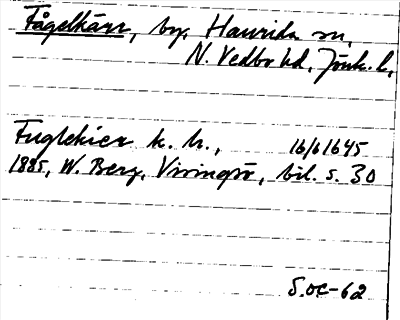 Fågelkärr, by, Haurida sn,
N. Vedbo hd, Jönk. l,
Fuglekier k. h., 16/6 1645
1885, W. Berg, Visingsö, bil. s. 30
S.OC-62